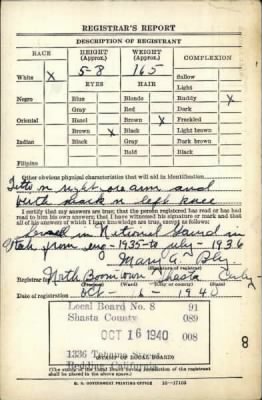 REGISTRAR'S REPORT
DESCRIPTION OF REGISTRANT
RACE HEIGHT (Approx.) WEIGHT (Approx.) COMPLEXION
White X 5-8 165 Sallow
EYES HAIR Light
Negro Blue Blonde Ruddy X
Gray Red Dark
Oriental Hazel Brown X Freckled
Brown X Black Light brown
Indian Black Gray Dark brown
Bald Black
Filipino
Other obvious physical characteristics that will aid in identification
right forearm and
birth mark n left knee
I certify that my answers are true; that the person registered has read or has had
read to him his own answers; that I have witnessed his signature or mark and that
all of his answers of which I have knowledge are true, except as follows:
in National Guard in
Utah from 1935 to July - 1936
Mary A.
(Signature of registrar)
Registrar for Boomtown Shasta Calif
(Precinct) (Ward) (City or county)
Date of registration Oct 16 - 1940
Local Board No. 8 91
Shasta County 089
OCT 16 1940 008
1336
Redding, California
(STAMP OF LOCAL BOARD)
8
shall be placed in the above space.)
U. S. GOVERNMENT PRINTING OFFICE 16—17105